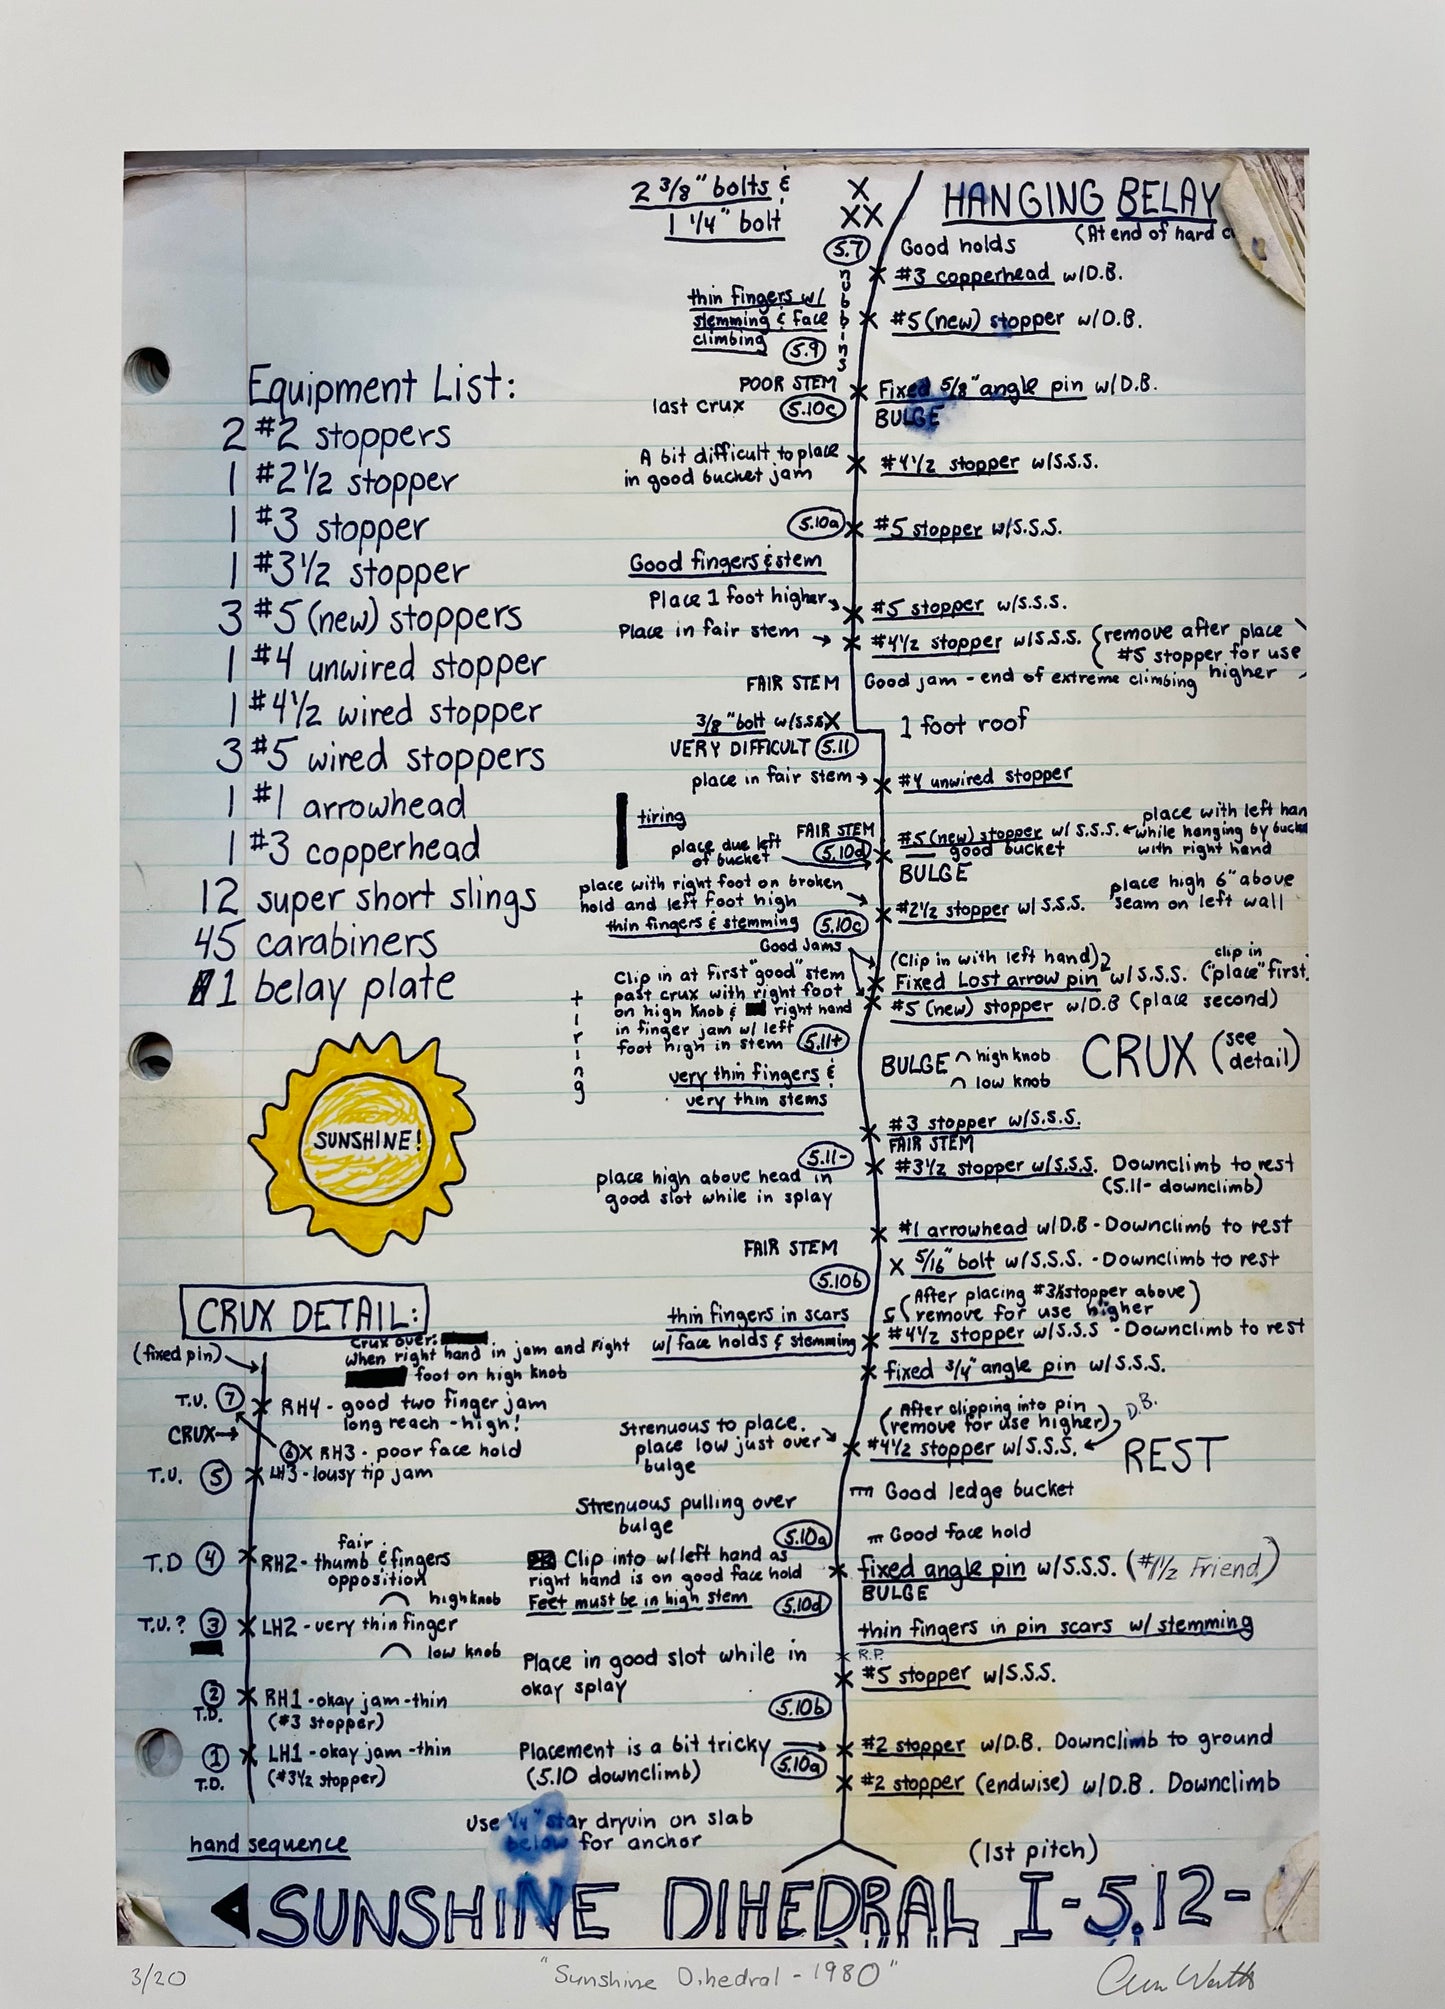 2 3/8" bolts &
1 1/4" bolt
X
XX
HANGING BELAY
(At end of hard
5.7
Good holds
nubbins
#3 copperhead w/D.B.
thin fingers w/
stemming & face
climbing
5.9
#5 (new) stopper w/D.B.
POOR STEM
last crux 5.10c
Fixed 5/8" angle pin w/D.B.
BULGE
A bit difficult to place
in good bucket jam
#4 1/2 stopper w/S.S.S.
5.10a
#5 stopper w/S.S.S.
Good fingers & stem
Place 1 foot higher
#5 stopper w/S.S.S.
Place in fair stem →
#4 1/2 stopper w/S.S.S. (remove after place
#5 stopper for use
higher
FAIR STEM
Good jam - end of extreme climbing
3/8" bolt w/S.S.S X
1 foot roof
VERY DIFFICULT 5.11
place in fair stem →
#4 unwired stopper
tiring
FAIR STEM
place due left
of bucket
5.10d
#5 (new) stopper w/ S.S.S.
good bucket
place with left han
← while hanging by bucke
with right hand
BULGE
place with right foot on broken
hold and left foot high
#2 1/2 stopper w/ S.S.S.
place high 6" above
seam on left wall
thin fingers & stemming 5.10c
Good Jams
(Clip in with left hand)
Fixed Lost arrow pin w/S.S.S.
clip in
("place" first
#5 (new) stopper w/D.B (place second)
tiring
Clip in at first "good" stem
past crux with right foot
on high knob & right hand
in finger jam w/ left
foot high in stem 5.11+
BULGE
high knob
low knob
CRUX (see
detail)
very thin fingers &
very thin stems
#3 stopper w/S.S.S.
FAIR STEM
5.11-
#3 1/2 stopper w/S.S.S. Downclimb to rest
(5.11- downclimb)
place high above head in
good slot while in splay
#1 arrowhead w/D.B - Downclimb to rest
FAIR STEM
X 5/16" bolt w/S.S.S. - Downclimb to rest
5.10b
(After placing #3 1/2 stopper above)
remove for use higher
thin fingers in scars
w/ face holds & stemming
#4 1/2 stopper w/S.S.S - Downclimb to rest
fixed 3/4" angle pin w/S.S.S.
(After clipping into pin
remove for use higher)
D.B.
Strenuous to place.
place low just over
bulge
#4 1/2 stopper w/S.S.S.
REST
Good ledge bucket
Strenuous pulling over
bulge
5.10a
Good face hold
Clip into w/left hand as
right hand is on good face hold
Feet must be in high stem
fixed angle pin w/S.S.S. (#1 1/2 Friend)
BULGE
5.10d
thin fingers in pin scars w/ stemming
R.P.
Place in good slot while in
okay splay
#5 stopper w/S.S.S.
5.10b
Placement is a bit tricky
(5.10 downclimb)
#2 stopper w/D.B. Downclimb to ground
5.10a
#2 stopper (endwise) w/D.B. Downclimb
Use 1/4" star dryvin on slab
below for anchor
(1st pitch)
Equipment List:
2 #2 stoppers
1 #2 1/2 stopper
1 #3 stopper
1 #3 1/2 stopper
3 #5 (new) stoppers
1 #4 unwired stopper
1 #4 1/2 wired stopper
3 #5 wired stoppers
1 #1 arrowhead
1 #3 copperhead
12 super short slings
45 carabiners
1 belay plate
SUNSHINE!
CRUX DETAIL:
(fixed pin)
Crux over:
when right hand in jam and right
foot on high knob
T.U. 7 X RH4 - good two finger jam
long reach - high!
CRUX→
6 X RH3 - poor face hold
T.U. 5 X LH3 - lousy tip jam
T.D 4 X RH2 - fair
thumb & fingers
opposition
high knob
T.U.? 3 X LH2 - very thin finger
low knob
2 X RH1 - okay jam - thin
T.D. (#3 stopper)
1 X LH1 - okay jam - thin
T.D. (#3 1/2 stopper)
hand sequence
SUNSHINE DIHEDRAL I-5.12-
3/20
"Sunshine Dihedral - 1980"